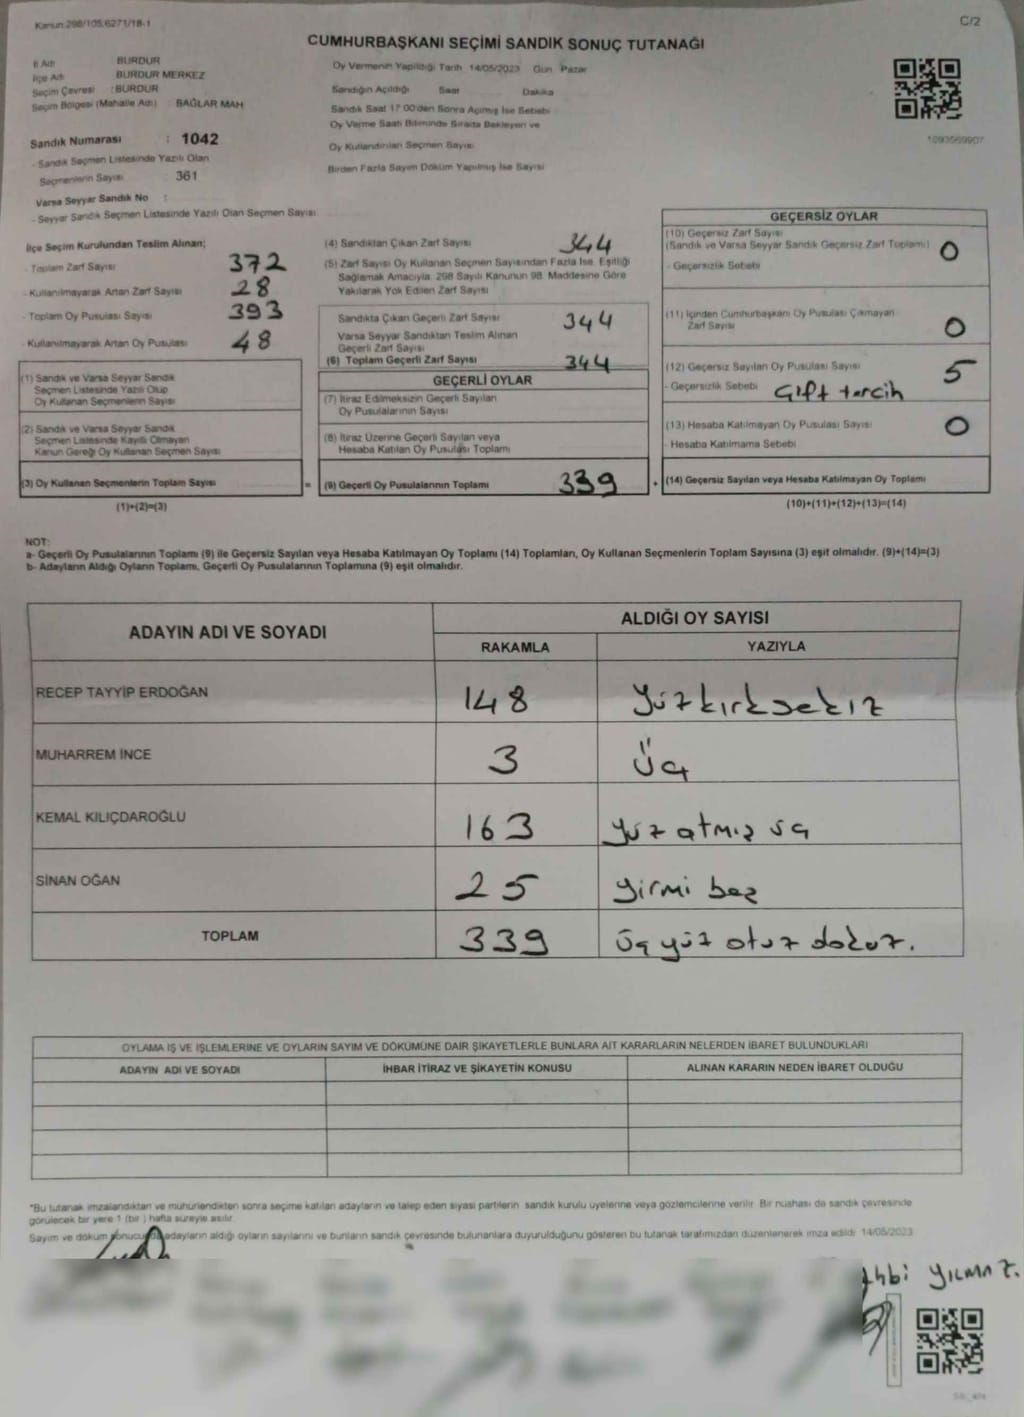 Kanun:298/105,6271/18-1
C/2
CUMHURBAŞKANI SEÇİMİ SANDIK SONUÇ TUTANAĞI
İl Adı BURDUR
İlçe Adı BURDUR MERKEZ
Seçim Çevresi : BURDUR
Seçim Bölgesi (Mahalle Adı) : BAĞLAR MAH
Oy Vermenin Yapıldığı Tarih 14/05/2023 Gün Pazar
Sandığın Açıldığı Saat Dakika
Sandık Saat 17.00'den Sonra Açılmış İse Sebebi
Oy Verme Saati Bitiminde Sırada Bekleyen ve
Oy Kullandırılan Seçmen Sayısı
Birden Fazla Sayım Döküm Yapılmış İse Sayısı
1093569907
Sandık Numarası : 1042
- Sandık Seçmen Listesinde Yazılı Olan
Seçmenlerin Sayısı : 361
Varsa Seyyar Sandık No :
- Seyyar Sandık Seçmen Listesinde Yazılı Olan Seçmen Sayısı
İlçe Seçim Kurulundan Teslim Alınan;
- Toplam Zarf Sayısı 372
- Kullanılmayarak Artan Zarf Sayısı 28
- Toplam Oy Pusulası Sayısı 393
- Kullanılmayarak Artan Oy Pusulası 48
(1) Sandık ve Varsa Seyyar Sandık
Seçmen Listesinde Yazılı Olup
Oy Kullanan Seçmenlerin Sayısı
(2) Sandık ve Varsa Seyyar Sandık
Seçmen Listesinde Kayıtlı Olmayan
Kanun Gereği Oy Kullanan Seçmen Sayısı
(3) Oy Kullanan Seçmenlerin Toplam Sayısı
(1)+(2)=(3)
=
(4) Sandıktan Çıkan Zarf Sayısı 344
(5) Zarf Sayısı Oy Kullanan Seçmen Sayısından Fazla İse, Eşitliği
Sağlamak Amacıyla, 298 Sayılı Kanunun 98. Maddesine Göre
Yakılarak Yok Edilen Zarf Sayısı
Sandıkta Çıkan Geçerli Zarf Sayısı 344
Varsa Seyyar Sandıktan Teslim Alınan
Geçerli Zarf Sayısı
(6) Toplam Geçerli Zarf Sayısı 344
GEÇERLİ OYLAR
(7) İtiraz Edilmeksizin Geçerli Sayılan
Oy Pusulalarının Sayısı
(8) İtiraz Üzerine Geçerli Sayılan veya
Hesaba Katılan Oy Pusulası Toplamı
(9) Geçerli Oy Pusulalarının Toplamı 339
+
GEÇERSİZ OYLAR
(10) Geçersiz Zarf Sayısı
(Sandık ve Varsa Seyyar Sandık Geçersiz Zarf Toplamı) 0
- Geçersizlik Sebebi
(11) İçinden Cumhurbaşkanı Oy Pusulası Çıkmayan
Zarf Sayısı 0
(12) Geçersiz Sayılan Oy Pusulası Sayısı 5
- Geçersizlik Sebebi Çift tercih
(13) Hesaba Katılmayan Oy Pusulası Sayısı 0
- Hesaba Katılmama Sebebi
(14) Geçersiz Sayılan veya Hesaba Katılmayan Oy Toplamı
(10)+(11)+(12)+(13)=(14)
NOT:
a- Geçerli Oy Pusulalarının Toplamı (9) ile Geçersiz Sayılan veya Hesaba Katılmayan Oy Toplamı (14) Toplamları, Oy Kullanan Seçmenlerin Toplam Sayısına (3) eşit olmalıdır. (9)+(14)=(3)
b- Adayların Aldığı Oyların Toplamı, Geçerli Oy Pusulalarının Toplamına (9) eşit olmalıdır.
ADAYIN ADI VE SOYADI
ALDIĞI OY SAYISI
RAKAMLA YAZIYLA
RECEP TAYYİP ERDOĞAN 148 yüzkırksekiz
MUHARREM İNCE 3 üç
KEMAL KILIÇDAROĞLU 163 yüz atmış üç
SİNAN OĞAN 25 yirmi beş
TOPLAM 339 üç yüz otuz dokuz.
OYLAMA İŞ VE İŞLEMLERİNE VE OYLARIN SAYIM VE DÖKÜMÜNE DAİR ŞİKAYETLERLE BUNLARA AİT KARARLARIN NELERDEN İBARET BULUNDUKLARI
ADAYIN ADI VE SOYADI İHBAR İTİRAZ VE ŞİKAYETİN KONUSU ALINAN KARARIN NEDEN İBARET OLDUĞU
*Bu tutanak imzalandıktan ve mühürlendikten sonra seçime katılan adayların ve talep eden siyasi partilerin sandık kurulu üyelerine veya gözlemcilerine verilir. Bir nüshası da sandık çevresinde
görülecek bir yere 1 (bir ) hafta süreyle asılır.
Sayım ve döküm sonucunda adayların aldığı oyların sayılarını ve bunların sandık çevresinde bulunanlara duyurulduğunu gösteren bu tutanak tarafımızdan düzenlenerek imza edildi 14/05/2023
YILMAZ.